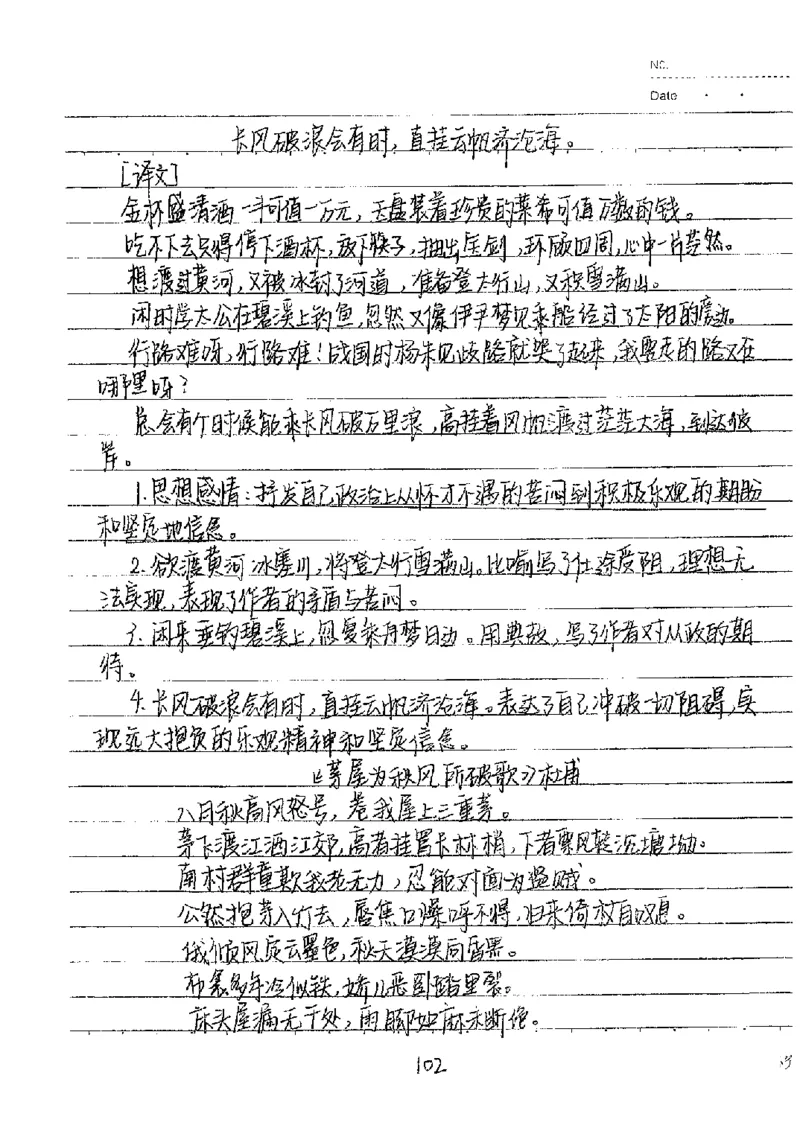 NO.
Date
长风破浪会有时，直挂云帆济沧海。
[译文]
金杯盛清酒一斗可值一万元，玉盘装着珍贵的菜希可值万数的钱。
吃不下去只得停下酒杯，放下筷子，抽出宝剑，环顾四周，心中一片茫然。
想渡过黄河，又被冰封了河道，准备登太行山，又积雪满山。
闲时学太公在碧溪上钓鱼，忽然又像伊尹梦见乘船经过了太阳的旁边。
行路难呀，行路难！战国时杨朱见歧路就哭了起来，我要走的路又在
哪里呀？
总会有个时候能乘长风破万里浪，高挂着风帆渡过茫茫大海，到达彼
岸。
1.思想感情：抒发自己政治上从怀才不遇的苦闷到积极乐观的期盼
和坚定地信念。
2.欲渡黄河冰塞川，将登太行雪满山。比喻写了仕途受阻，理想无
法实现，表现了作者的矛盾与苦闷。
3.闲来垂钓碧溪上，忽复乘舟梦日边。用典故，写了作者对从政的期
待。
4.长风破浪会有时，直挂云帆济沧海。表达了自己冲破一切阻碍，实
现远大抱负的乐观精神和坚定信念。
《茅屋为秋风所破歌》杜甫
八月秋高风怒号，卷我屋上三重茅。
茅飞渡江洒江郊，高者挂罥长林梢，下者飘风转沉塘坳。
南村群童欺我老无力，忍能对面为盗贼。
公然抱茅入竹去，唇焦口燥呼不得，归来倚杖自叹息。
俄倾风定云墨色，秋天漠漠向昏黑。
布衾多年冷似铁，娇儿恶卧踏里裂。
床头屋漏无干处，雨脚如麻未断绝。
102